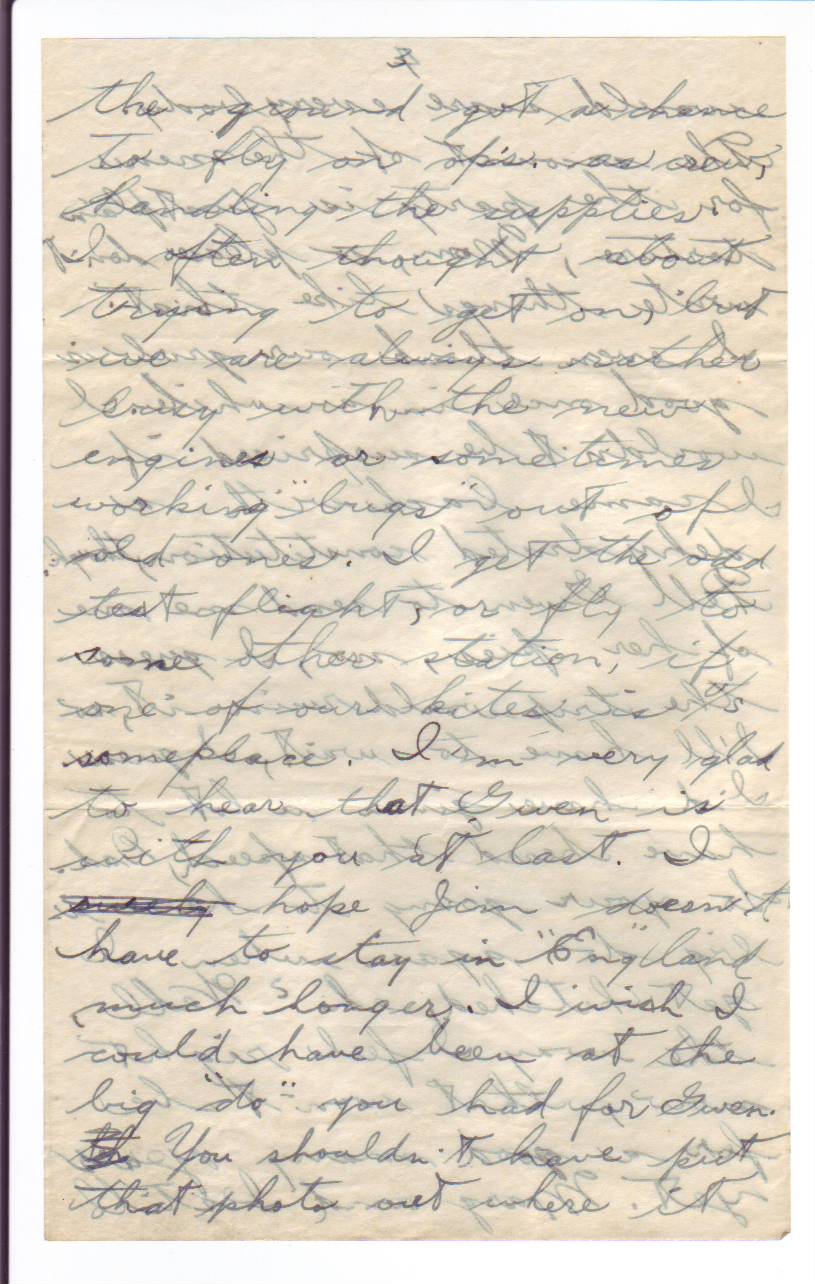 3
the ground get a chance
to fly on op's. as crew,
handling the supplies.
I often thought, about
trying to get on, but
we are always either
busy with the new
engines or sometimes
working "bugs" out of
old ones. I get the odd
test flight, or fly to
some other station, if
one of our kites is u/s
someplace. I'm very glad
to hear that Gwen is
with you at last. I
surely hope Jim doesn't
have to stay in "Eng"land
much longer. I wish I
could have been at the
big "do" you had for Gwen.
You shouldn't have put
that photo out where it